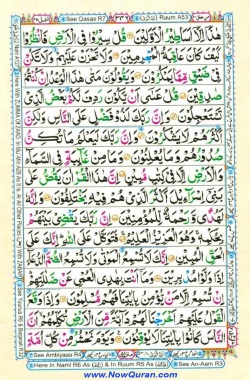 See Qasas R7 ٣٤٦ Ruum A53
هٰذَاۤ اِلَّاۤ اَسَاطِيْرُ الْاَوَّلِيْنَ ۞ قُلْ سِيْرُوْا فِي الْاَرْضِ فَانْظُرُوْا
كَيْفَ كَانَ عَاقِبَةُ الْمُجْرِمِيْنَ ۞ وَلَا تَحْزَنْ عَلَيْهِمْ وَلَا تَكُنْ
فِيْ ضَيْقٍ مِّمَّا يَمْكُرُوْنَ ۞ وَيَقُوْلُوْنَ مَتٰى هٰذَا الْوَعْدُ اِنْ كُنْتُمْ
صٰدِقِيْنَ ۞ قُلْ عَسٰۤى اَنْ يَّكُوْنَ رَدِفَ لَكُمْ بَعْضُ الَّذِيْ
تَسْتَعْجِلُوْنَ ۞ وَاِنَّ رَبَّكَ لَذُوْ فَضْلٍ عَلَى النَّاسِ وَلٰكِنَّ
اَكْثَرَهُمْ لَا يَشْكُرُوْنَ ۞ وَاِنَّ رَبَّكَ لَيَعْلَمُ مَا تُكِنُّ
صُدُوْرُهُمْ وَمَا يُعْلِنُوْنَ ۞ وَمَا مِنْ غَآئِبَةٍ فِي السَّمَآءِ
وَالْاَرْضِ اِلَّا فِيْ كِتٰبٍ مُّبِيْنٍ ۞ اِنَّ هٰذَا الْقُرْاٰنَ يَقُصُّ عَلٰى
بَنِيْۤ اِسْرَآءِيْلَ اَكْثَرَ الَّذِيْ هُمْ فِيْهِ يَخْتَلِفُوْنَ ۞ وَاِنَّهٗ
لَهُدًى وَّرَحْمَةٌ لِّلْمُؤْمِنِيْنَ ۞ اِنَّ رَبَّكَ يَقْضِيْ بَيْنَهُمْ
بِحُكْمِهٖ وَهُوَ الْعَزِيْزُ الْعَلِيْمُ ۞ فَتَوَكَّلْ عَلَى اللّٰهِ اِنَّكَ عَلَى
الْحَقِّ الْمُبِيْنِ ۞ اِنَّكَ لَا تُسْمِعُ الْمَوْتٰى وَلَا تُسْمِعُ الصُّمَّ الدُّعَآءَ
اِذَا وَلَّوْا مُدْبِرِيْنَ ۞ وَمَاۤ اَنْتَ بِهٰدِي الْعُمْيِ عَنْ ضَلٰلَتِهِمْ
اِنْ تُسْمِعُ اِلَّا مَنْ يُّؤْمِنُ بِاٰيٰتِنَا فَهُمْ مُّسْلِمُوْنَ ۞ وَاِذَا وَقَعَ
الْقَوْلُ عَلَيْهِمْ اَخْرَجْنَا لَهُمْ دَآبَّةً مِّنَ الْاَرْضِ تُكَلِّمُهُمْ اَنَّ
النَّاسَ كَانُوْا بِاٰيٰتِنَا لَا يُوْقِنُوْنَ ۞ وَيَوْمَ نَحْشُرُ مِنْ كُلِّ اُمَّةٍ
See Ambiyaaa R4 See Aal-Aam R3
Here In Naml R6 As & In Ruum R5 As
www.NowQuran.com